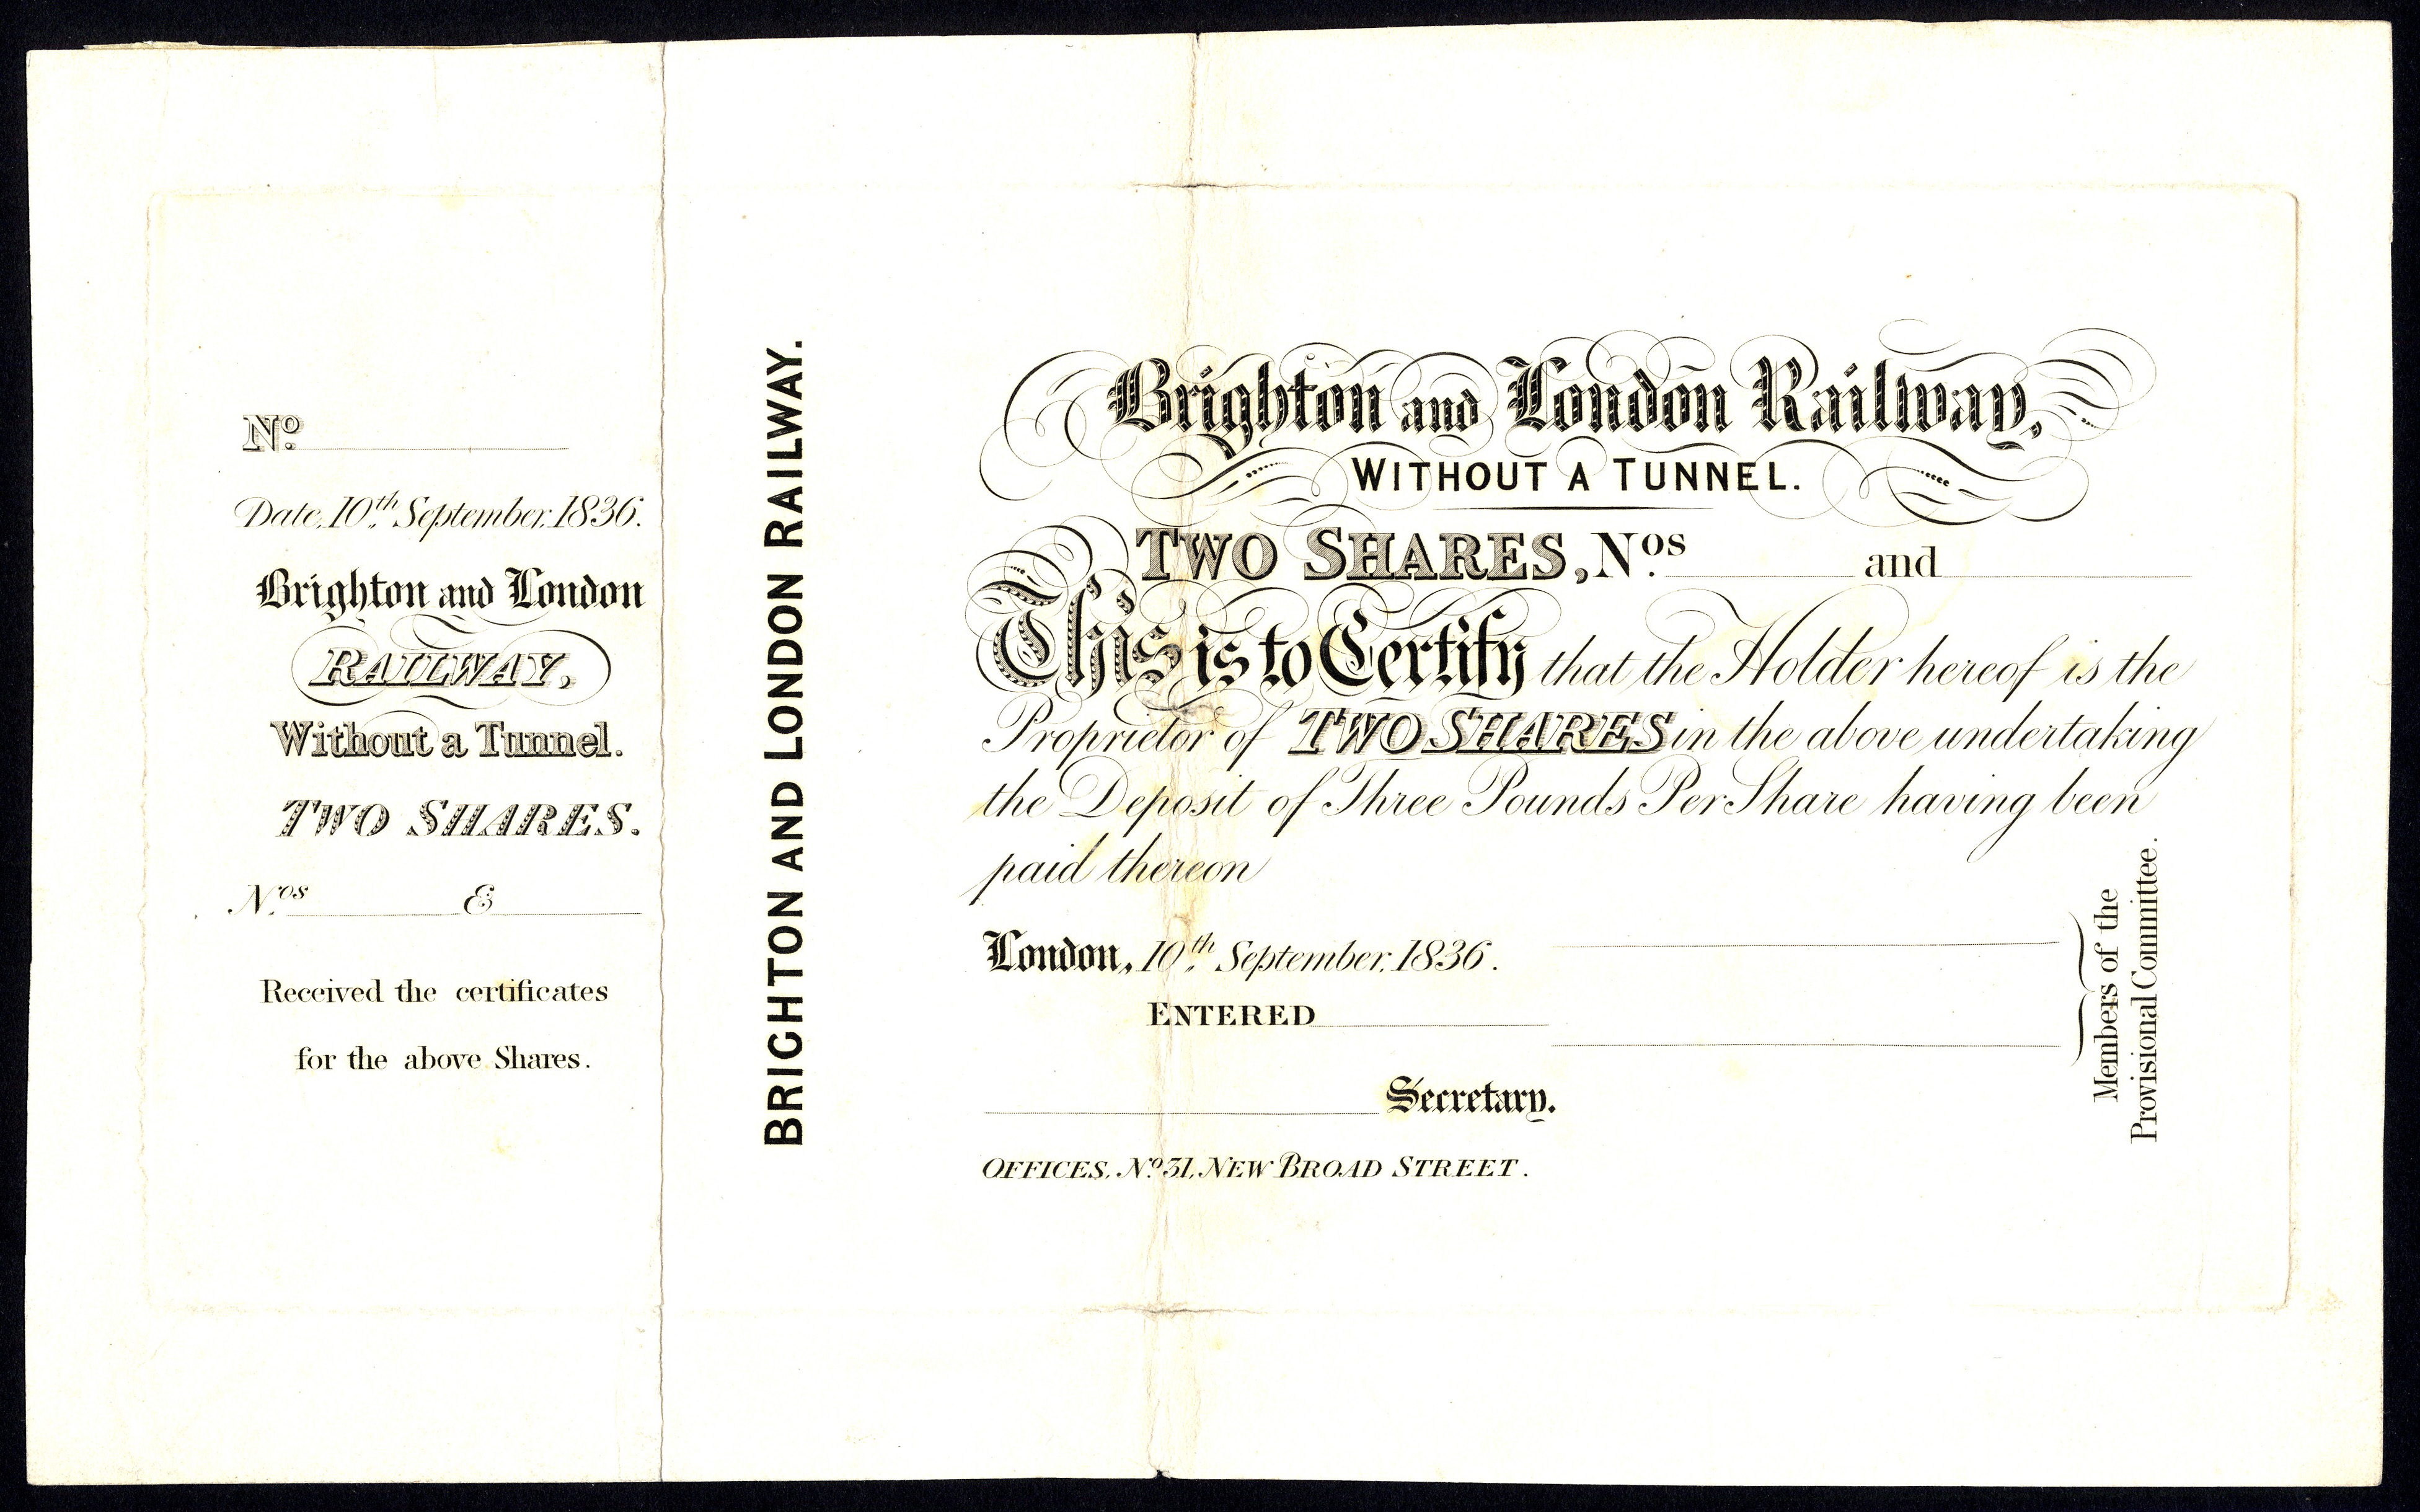 No.
Date, 10th September, 1836.
Brighton and London
RAILWAY,
Without a Tunnel.
TWO SHARES.
Nos. &
Received the certificates
for the above Shares.
BRIGHTON AND LONDON RAILWAY.
Brighton and London Railway,
WITHOUT A TUNNEL.
TWO SHARES, Nos. and
This is to Certify that the Holder hereof is the
Proprietor of TWO SHARES in the above undertaking
the Deposit of Three Pounds Per Share having been
paid thereon
London, 10th September, 1836.
ENTERED
Secretary.
OFFICES, No. 31, NEW BROAD STREET.
Members of the
Provisional Committee.